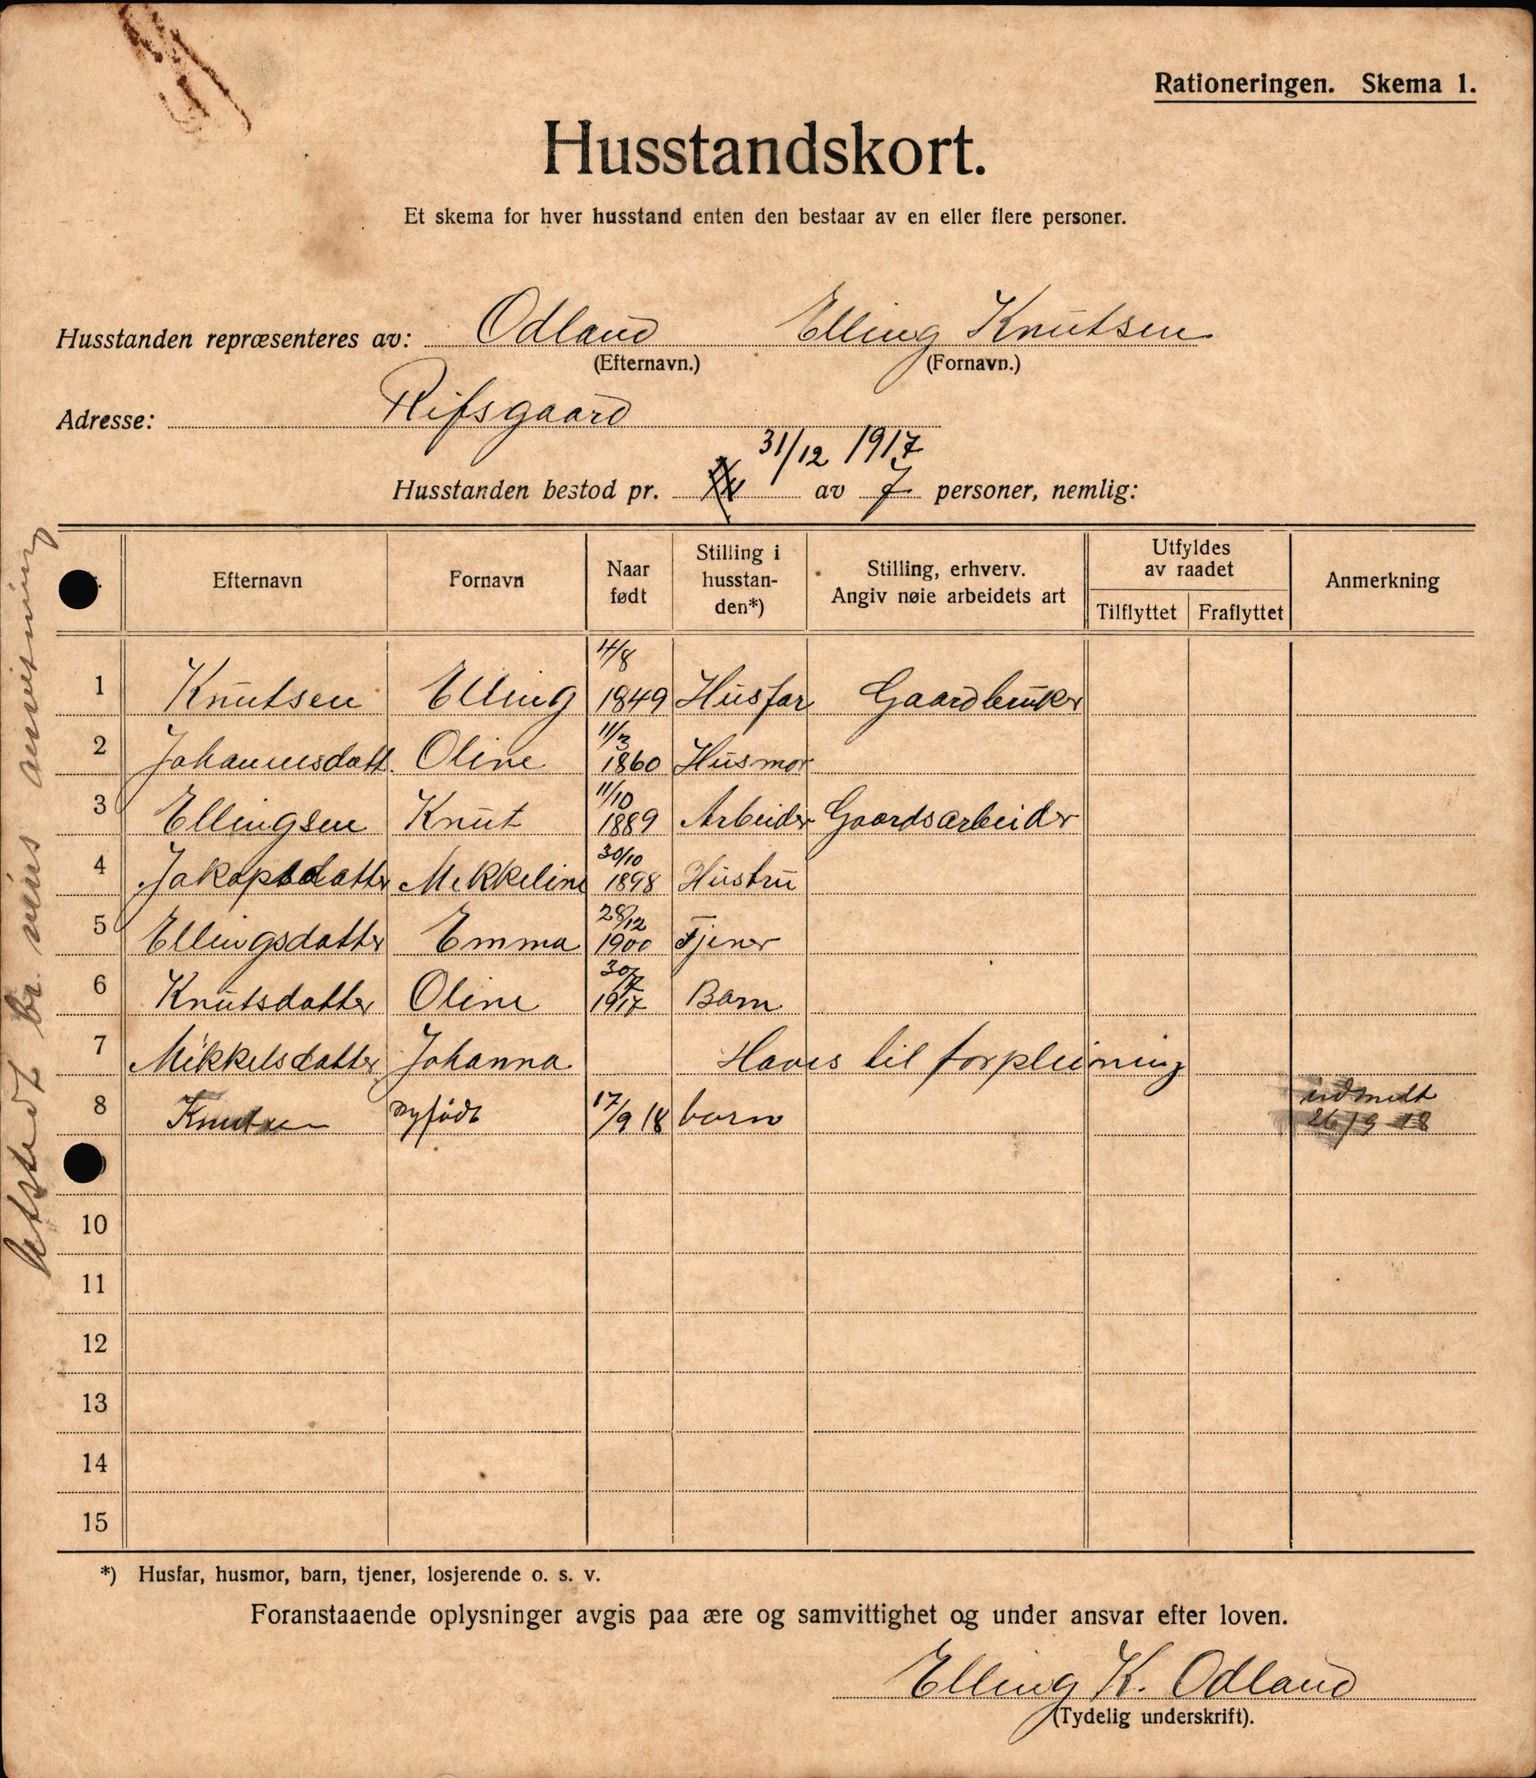 Rationeringen. Skema 1.
Husstandskort.
Et skema for hver husstand enten den bestaar av en eller flere personer.
Husstanden repræsenteres av: Odland Elling Knutsen
(Efternavn.) (Fornavn.)
Adresse: Rifsgaard
31/12 1917
Husstanden bestod pr. av 7 personer, nemlig:
Efternavn Fornavn Naar født Stilling i husstan-den*) Stilling, erhverv. Angiv nøie arbeidets art Utfyldes av raadet Tilflyttet Fraflyttet Anmerkning
1 Knutsen Elling 4/8 1849 Husfar Gaardbruker
2 Johannesdatt. Oline 11/3 1860 Husmor
3 Ellingsen Knut 11/10 1889 Arbeider Gaardsarbeider
4 Jakopsdatter Mekkeline 30/10 1898 Hustru
5 Ellingsdatter Emma 28/12 1900 Tjener
6 Knutsdatter Oline 30/7 1917 Barn
7 Mikkelsdatter Johanna Haves til forpleining
8 Knutsen nyfödt 17/9 18 barn indmeldt 26/9 18
10
11
12
13
14
15
*) Husfar, husmor, barn, tjener, losjerende o. s. v.
Foranstaaende oplysninger avgis paa ære og samvittighet og under ansvar efter loven.
Elling K. Odland
(Tydelig underskrift).
anvisning